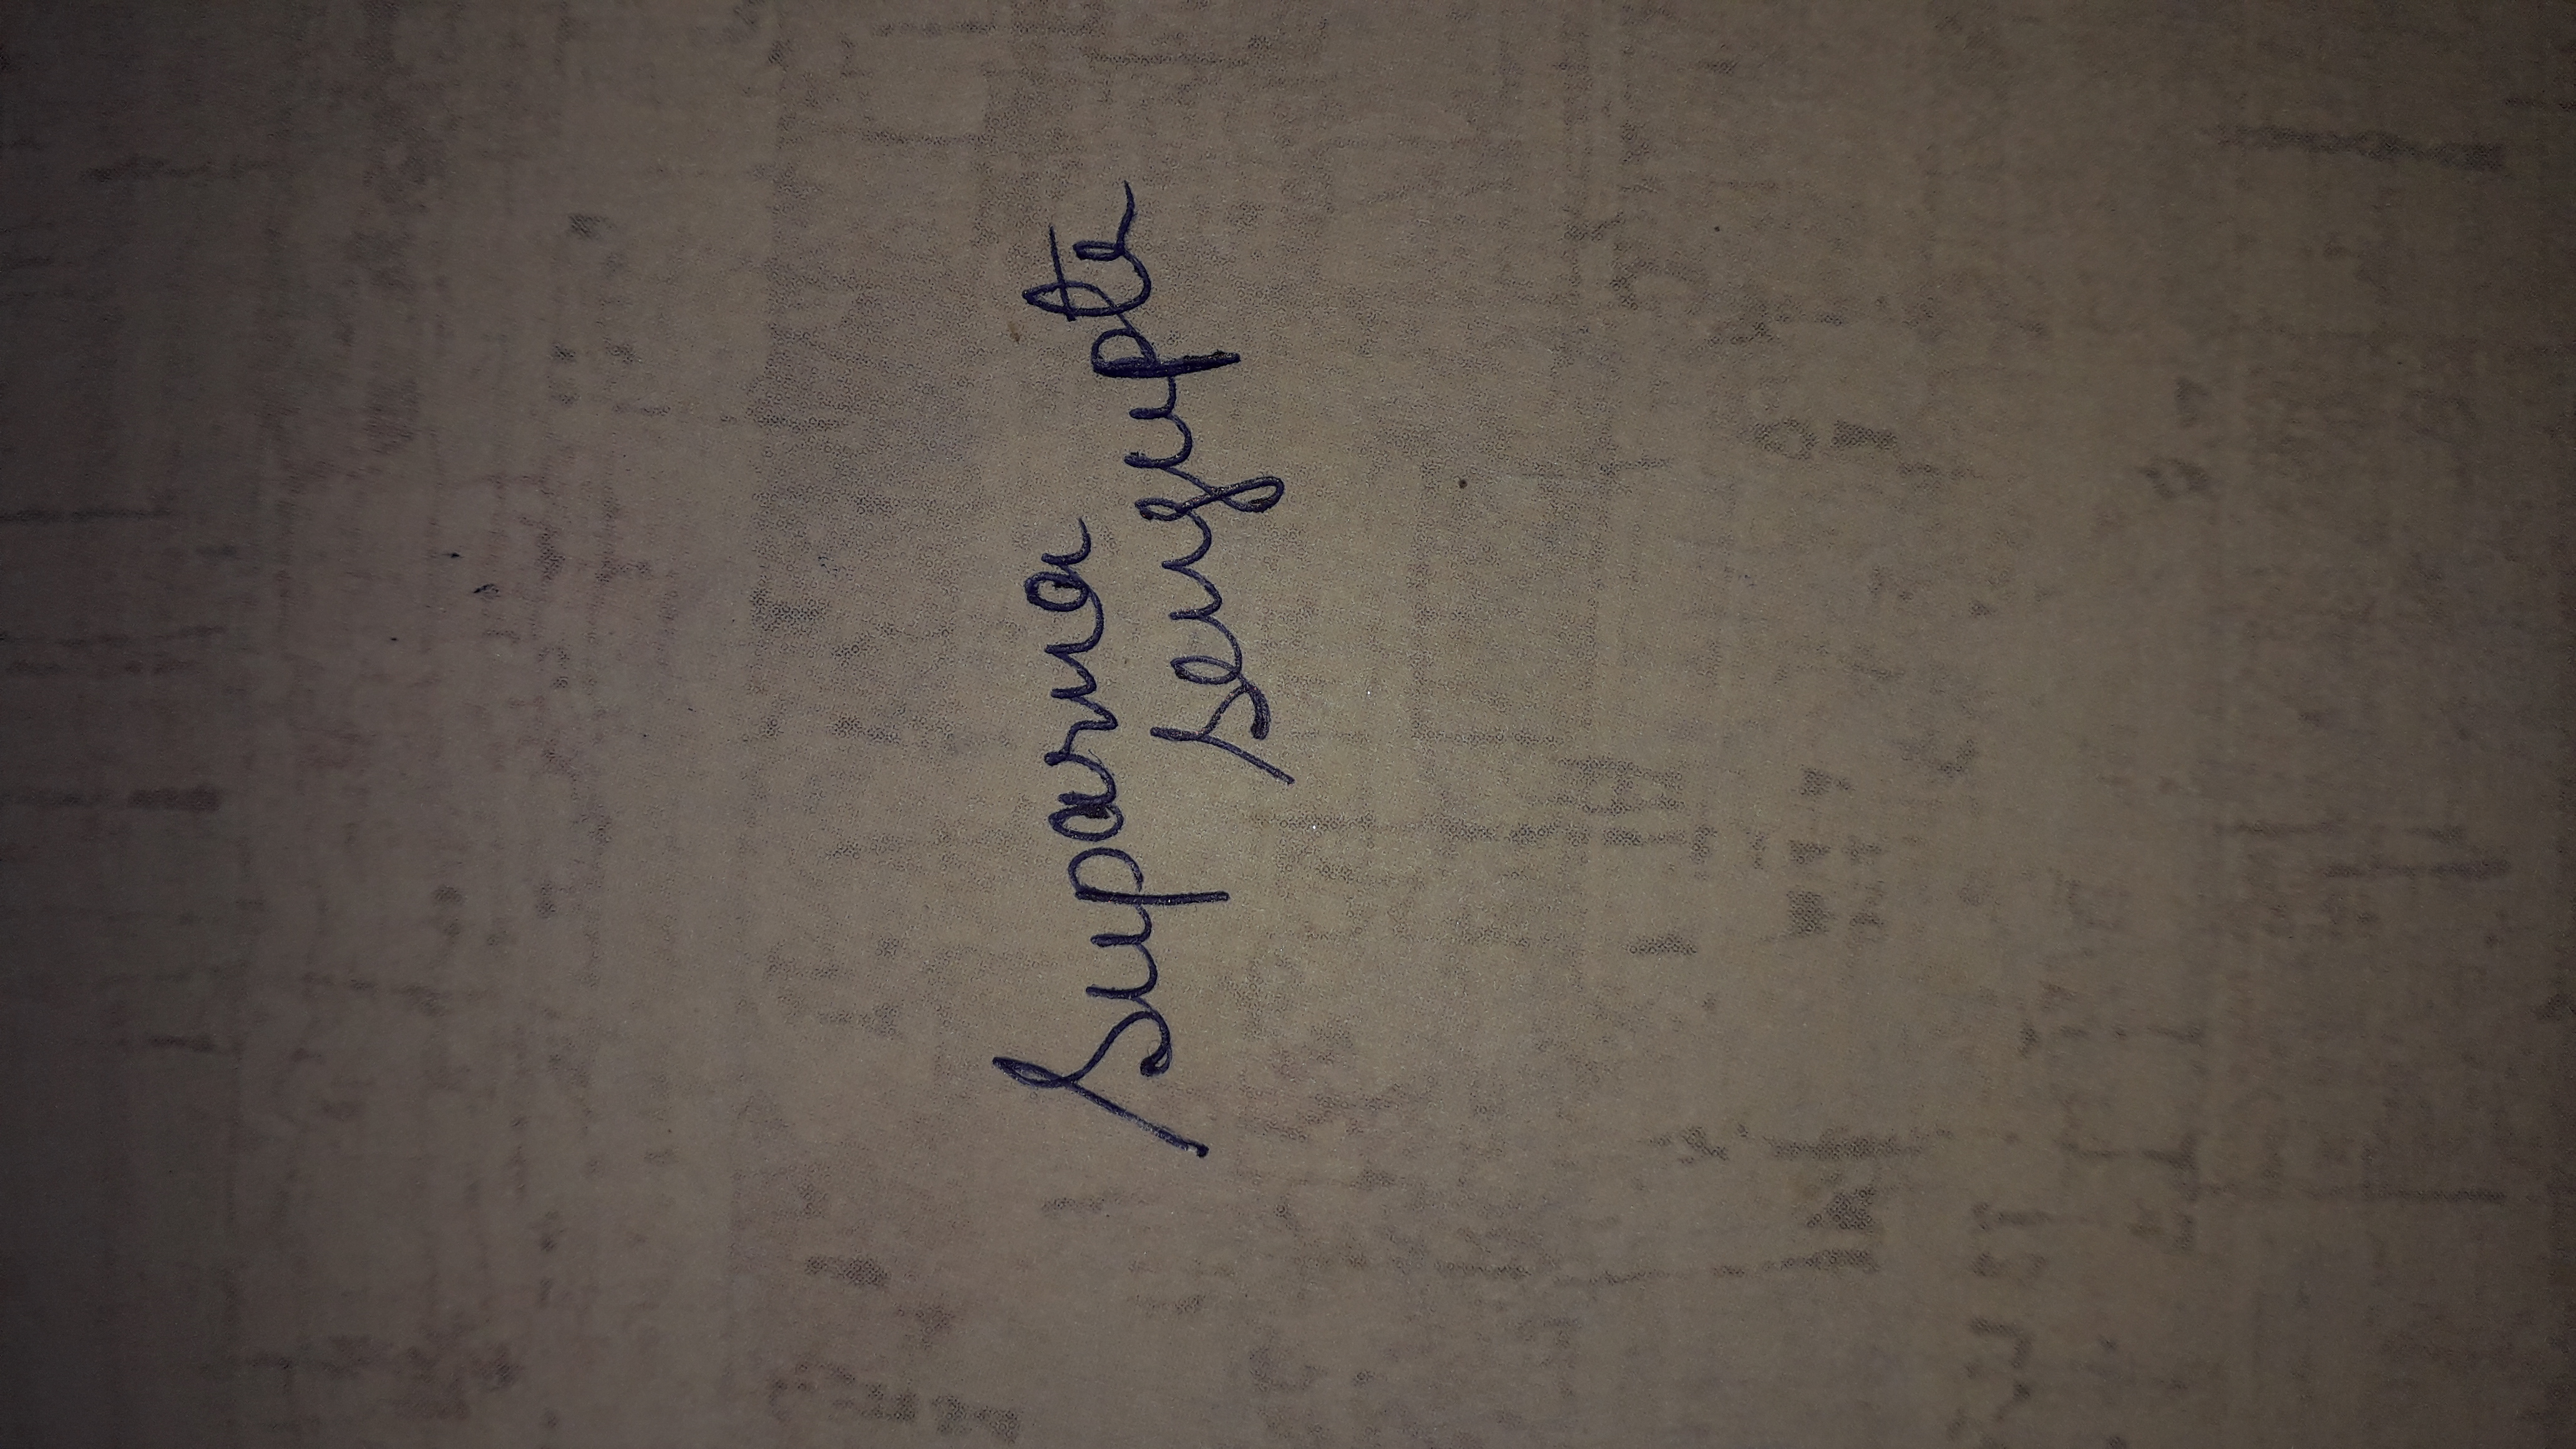 Suparna
Sengupta